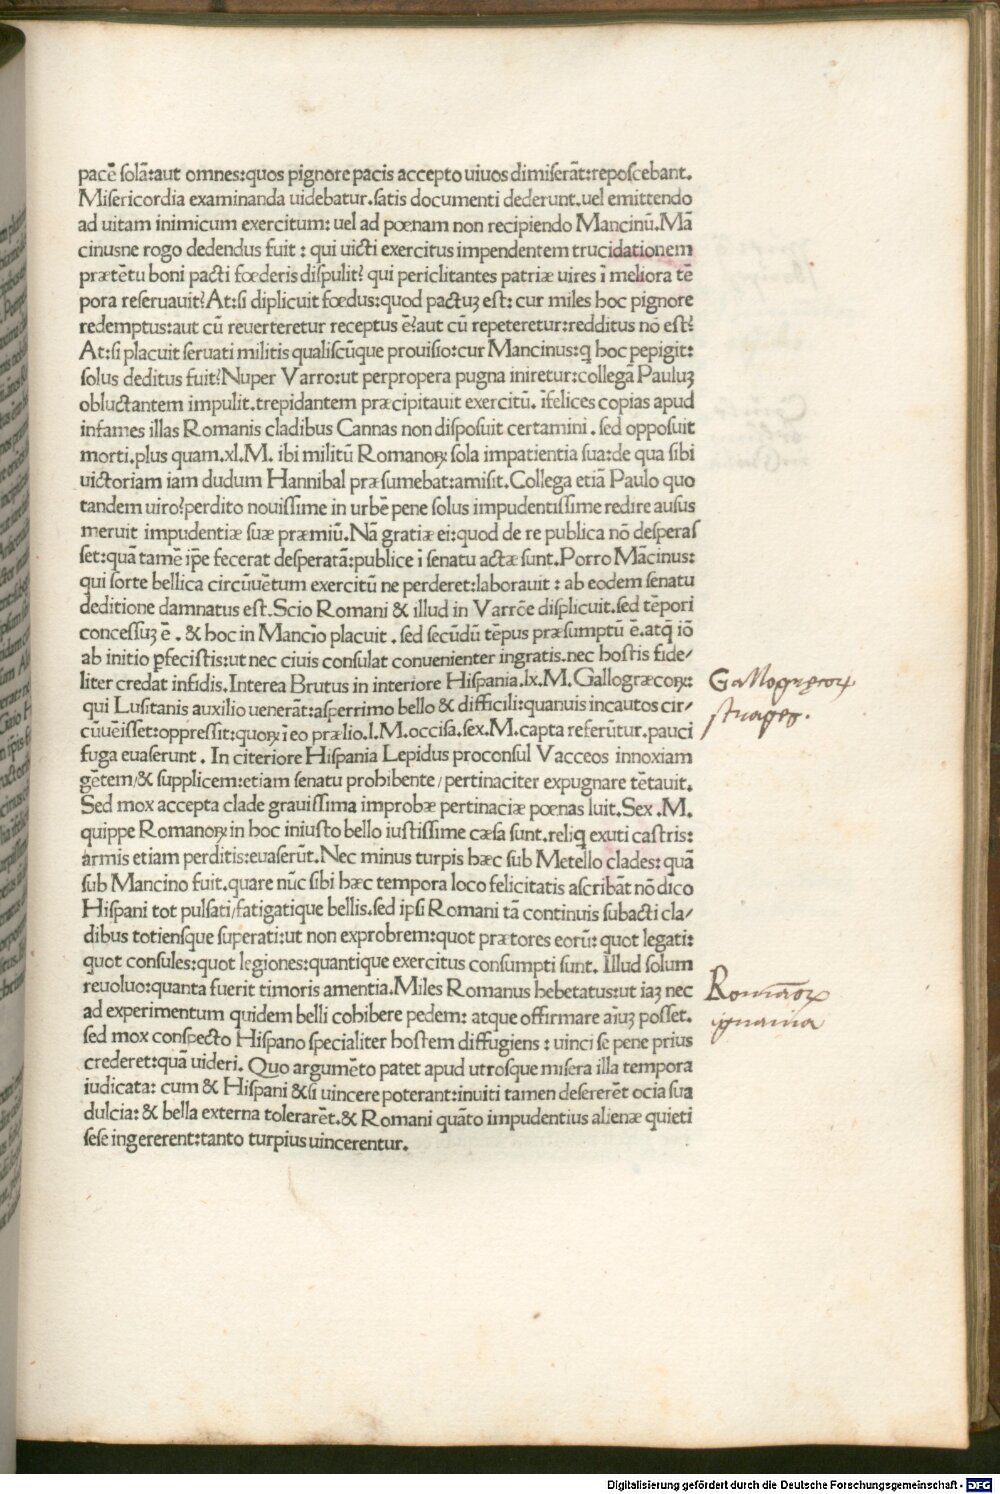 pacē ſolā:aut omnes:quos pignore pacis accepto uiuos dimiſerāt:repoſcebant.
Miſericordia examinanda uidebatur.ſatis documenti dederunt.uel emittendo
ad uitam inimicum exercitum: uel ad pœnam non recipiendo Mancinū.Mā
cinuſne rogo dedendus fuit : qui uicti exercitus impendentem trucidationem
prætētu boni pacti fœderis diſpulit? qui periclitantes patriæ uires ī meliora tē
pora reſeruauit?At:ſi diplicuit fœdus:quod pactuꝫ est: cur miles hoc pignore
redemptus:aut cū reuerteretur receptus ē?aut cū repeteretur:redditus nō eſt?
At:ſi placuit ſeruati militis qualiſcūque prouiſio:cur Mancinus:ꝗ hoc pepigit:
ſolus deditus fuit?Nuper Varro:ut perpropera pugna iniretur:collegā Pauluꝫ
obluctantem impulit.trepidantem præcipitauit exercitū. īfelices copias apud
infames illas Romanis cladibus Cannas non diſpoſuit certamini . ſed oppoſuit
morti.plus quam.xl.M. ibi militū Romanoꝝ ſola impatientia ſua:de qua ſibi
uictoriam iam dudum Hannibal præſumebat:amiſit.Collega etiā Paulo quo
tandem uiro?perdito nouiſſime in urbē pene ſolus impudentiſſime redire auſus
meruit impudentiæ ſuæ præmiū. Nā gratiæ ei:quod de re publica nō deſperaſ
ſet:quā tamē ip̄e fecerat deſperatā:publice ī ſenatu actæ ſunt.Porro Mācinus:
qui ſorte bellica circūuētum exercitū ne perderet:laborauit : ab eodem ſenatu
deditione damnatus eſt.Scio Romani & illud in Varrōe diſplicuit.ſed tēpori
conceſſuꝫ ē . & hoc in Mancīo placuit . ſed ſecūdū tēpus præſumptū ē.atq̄ iō
ab initio ꝑfeciſtis:ut nec ciuis conſulat conuenienter ingratis.nec hoſtis fide/
liter credat infidis.Interea Brutus in interiore Hiſpania.lx.M.Gallogræcoꝝ:
qui Luſitanis auxilio uenerāt:aſperrimo bello & difficili:quanuis incautos cir/
cūuēiſſet:oppreſſit:quoꝝ ī eo prælio.l.M.occiſa.ſex.M.capta referūtur.pauci
fuga euaſerunt . In citeriore Hiſpania Lepidus proconſul Vacceos innoxiam
gētem/& ſupplicem:etiam ſenatu prohibente/pertinaciter expugnare tētauit.
Sed mox accepta clade grauiſſima improbæ pertinaciæ pœnas luit.Sex .M.
quippe Romanoꝝ in hoc iniuſto bello iuſtiſſime cæſa ſunt.reliq̄ exuti caſtris:
armis etiam perditis:euaſerūt.Nec minus turpis hæc ſub Metello clades: quā
ſub Mancino fuit.quare nūc ſibi hæc tempora loco felicitatis aſcribāt nō dīco
Hiſpani tot pulſati/fatigatique bellis.ſed ipſi Romani tā continuis ſubacti cla/
dibus totienſque ſuperati:ut non exprobrem:quot prætores eorū: quot legati:
quot conſules:quot legiones:quantique exercitus conſumpti ſunt. Illud ſolum
reuoluo:quanta fuerit timoris amentia.Miles Romanus hebetatus:ut iaꝫ nec
ad experimentum quidem belli cohibere pedem: atque offirmare aiuꝫ poſſet.
ſed mox conſpecto Hiſpano ſpecialiter hoſtem diffugiens : uinci ſe pene prius
crederet:quā uideri. Quo argumēto patet apud utroſque miſera illa tempora
iudicata: cum & Hiſpani &ſi uincere poterant:inuiti tamen deſererēt ocia ſua
dulcia: & bella externa tolerarēt.& Romani quāto impudentius alienæ quieti
ſeſe ingererent:tanto turpius uincerentur.
Gallogręcoꝝ
ſtrages.
Romāoꝝ
ignauia
Digitalisierung gefördert durch die Deutsche Forschungsgemeinschaft - DFG